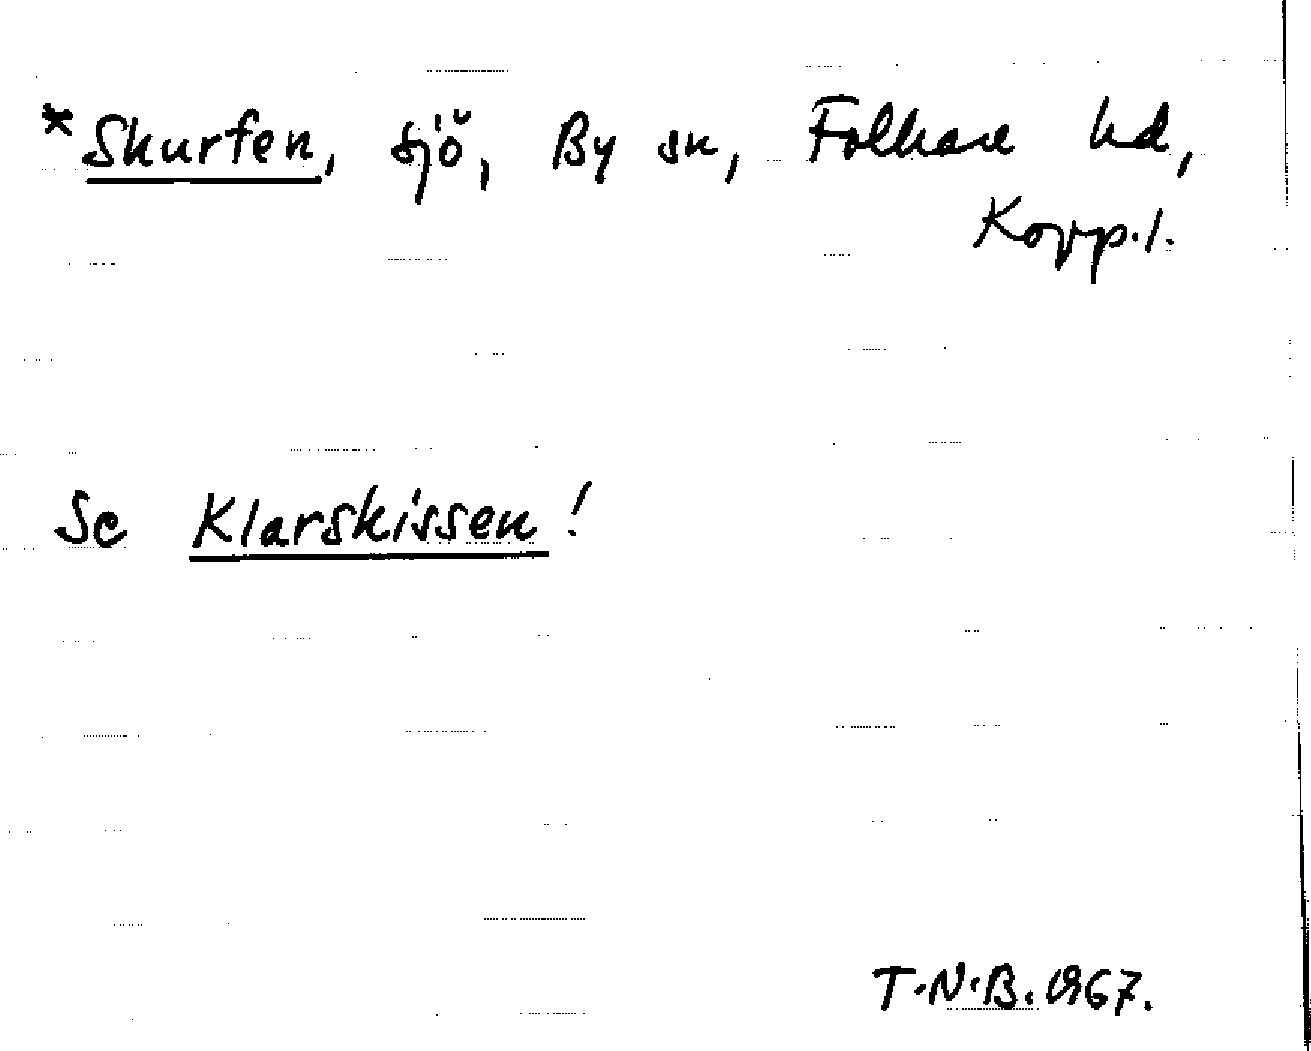 *Skurfen, sjö, By sn, Folkare hd,
Kopp.l.
Se Klarskissen!
T.N.B. 1967.